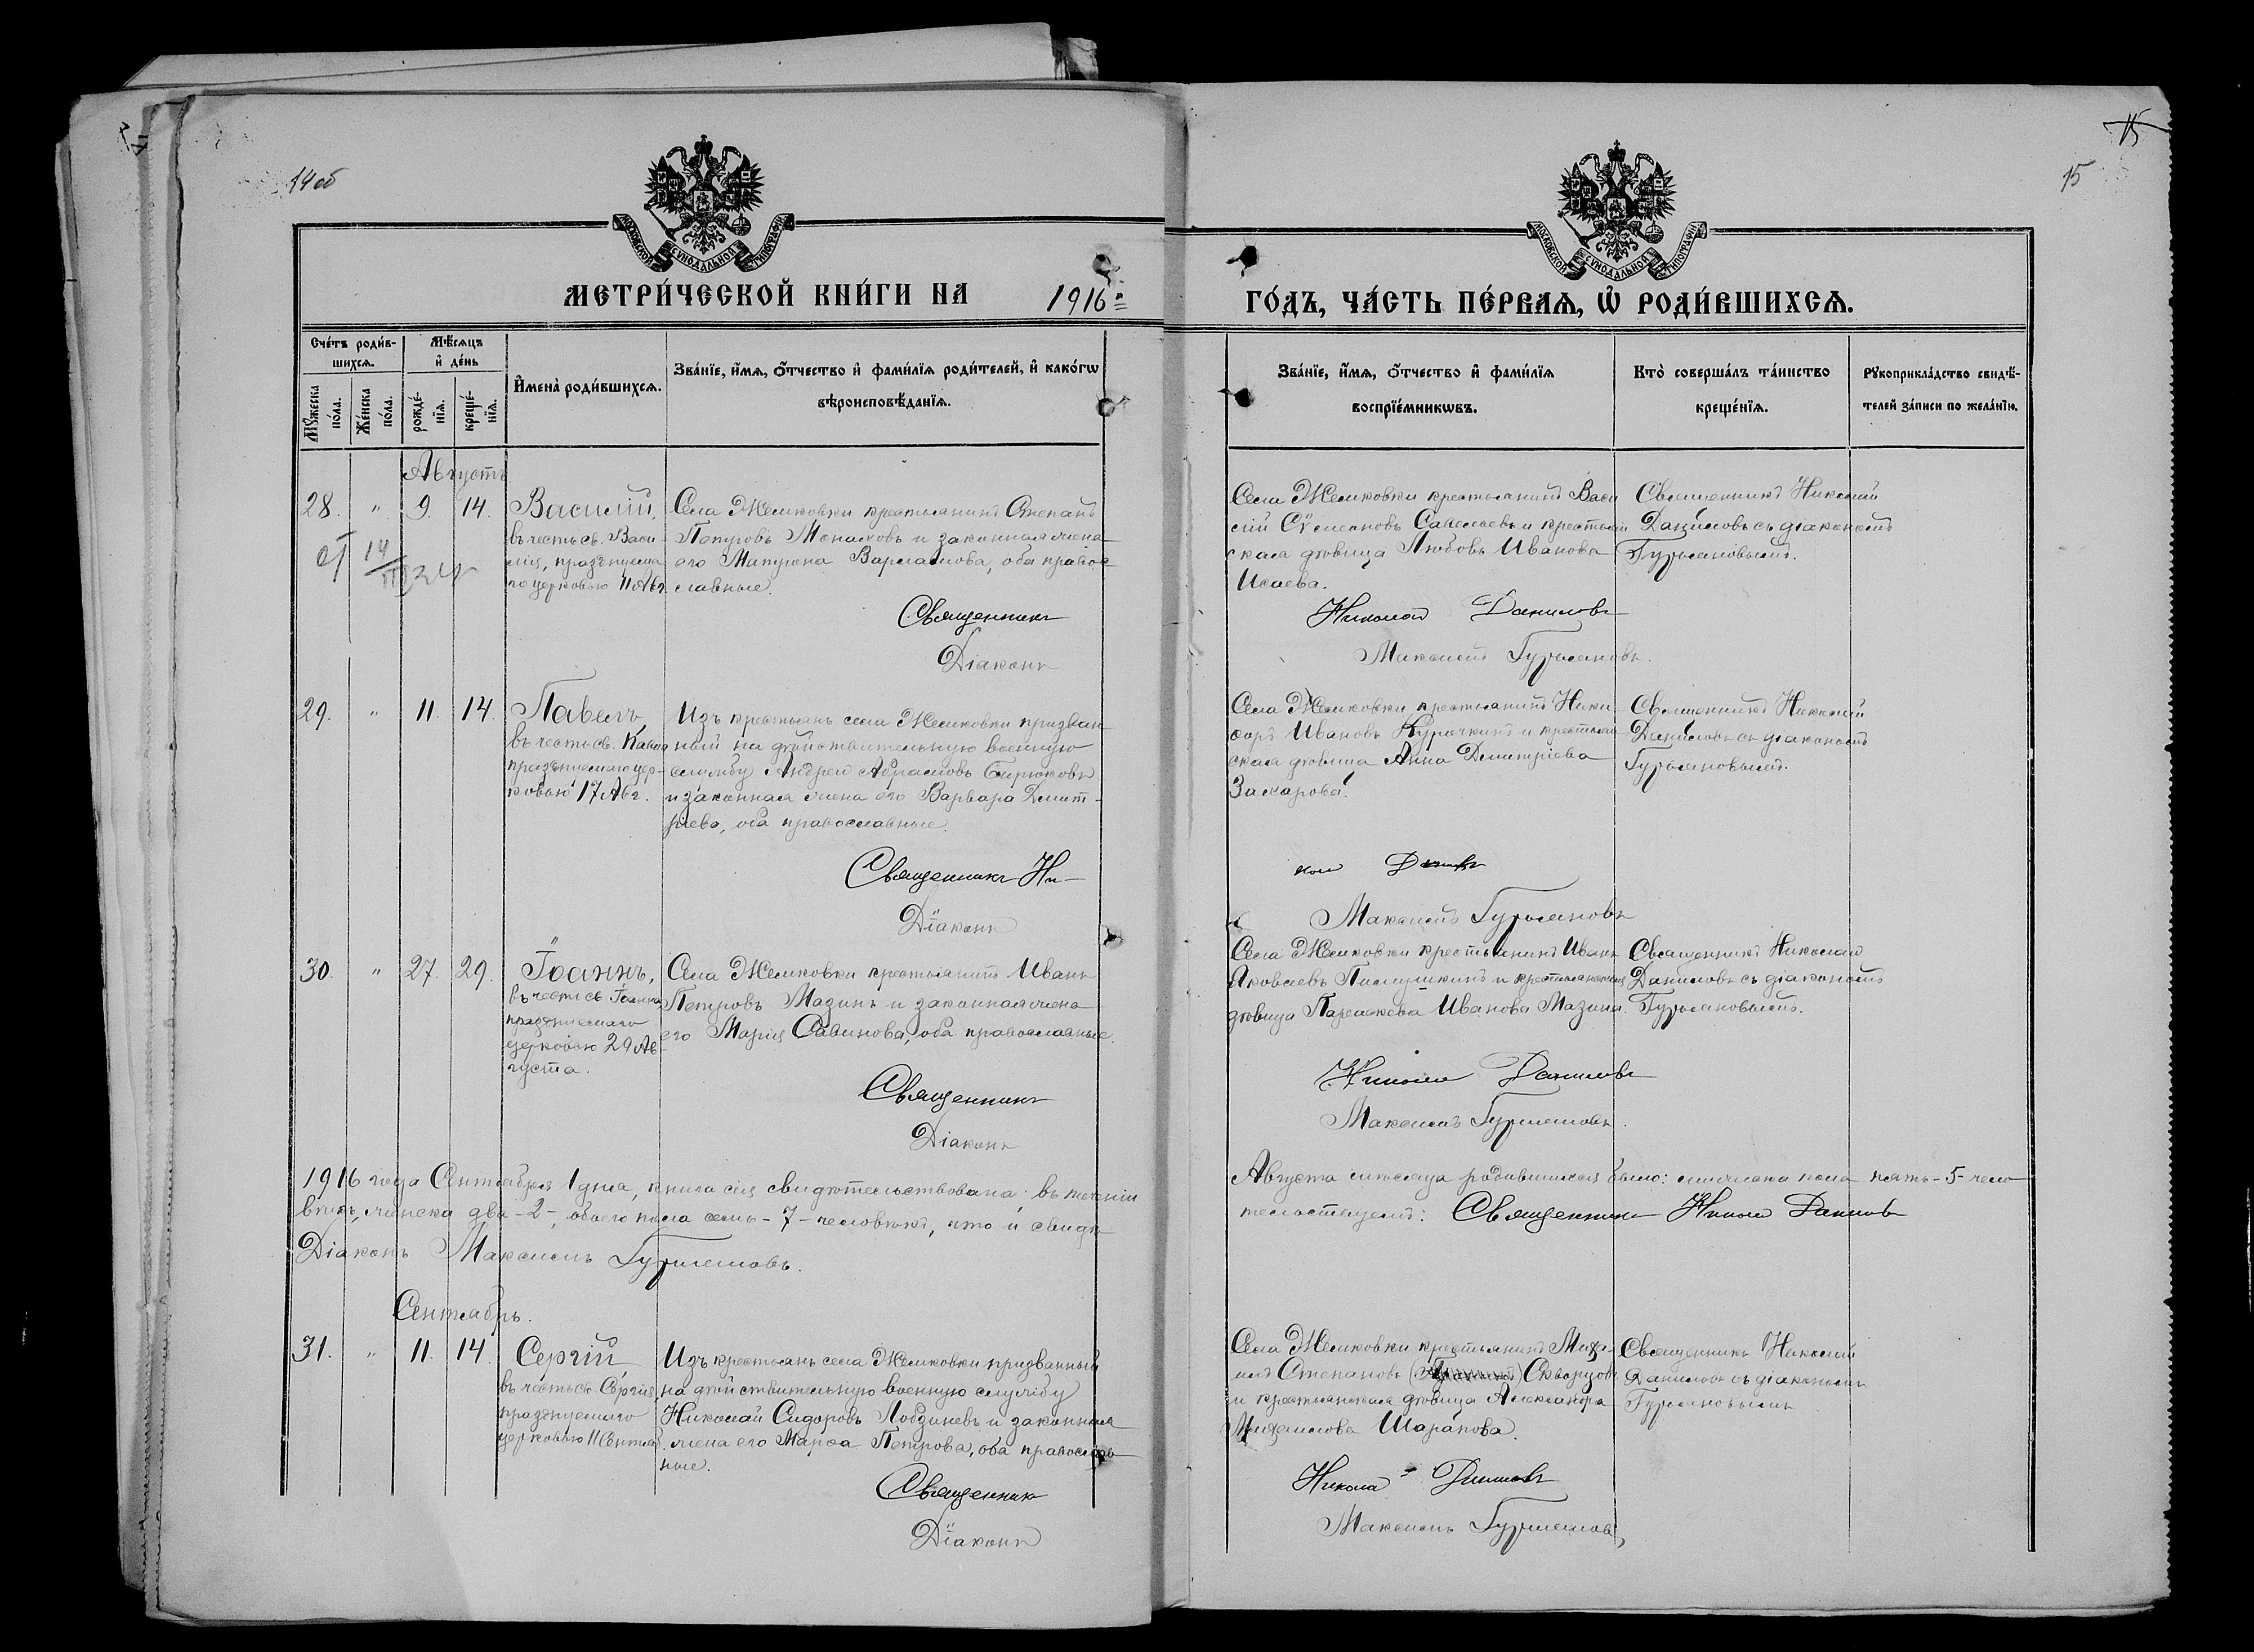 14 об
15
15
МОСКОВСКОЙ СУНОДАЛЬНОЙ ТИПОГРАФІИ
МОСКОВСКОЙ СУНОДАЛЬНОЙ ТИПОГРАФІИ
МЕТРИ́ЧЕСКОЙ КНИ́ГИ НА 1916 ГО́ДЪ, ЧА́СТЬ ПЕ́РВАѦ, Ѡ РОДИ́ВШИХСѦ.
Сче́тъ роди́в-
шихсѧ.
Мѣ́сѧцъ
и҆ де́нь
Мꙋ́жеска
по́ла.
Же́нска
по́ла.
рожде́-
нїѧ.
креще́-
нїѧ.
И҆мена̀ роди́вшихсѧ.
Зва́нїе, и҆́мѧ, ѻ҆́тчество и҆ фами́лїѧ роди́телей, и҆ како́гѡ
вѣроисповѣ́данїѧ.
Зва́нїе, и҆́мѧ, ѻ҆́тчество и҆ фами́лїѧ
воспрїе́мникѡвъ.
Кто̀ соверша́лъ та́инство
креще́нїѧ.
Рꙋкоприкла́дство свидѣ́-
телей за́писи по жела́нїю.
Августъ
28. " 9. 14.
Василій,
въ честь св. Васи-
лія, празднуема
го церковью 11 Авг.
Села Жемковки крестьянинъ Степанъ
Петровъ Монаховъ и законная жена
его Матрона Варлаамова, оба право-
славные.
Священникъ
Діаконъ
Села Жемковки крестьянинъ Васи
лій Сѵмеоновъ Савельевъ и крестьян
ская дѣвица Любовь Иванова
Исаева.
Николай Даниловъ
Максимъ Гурьяновъ.
Священникъ Николай
Даниловъ съ діакономъ
Гурьяновымъ.
29. " 11. 14.
Павелъ,
въ честь св. Павла
празднуемаго цер-
ковью 17 Авг.
Изъ крестьянъ села Жемковки призван
ный на дѣйствительную военную
службу Андрей Абрамовъ Бирюковъ
и законная жена его Варвара Дмит-
ріева, оба православные.
Священникъ Ни-
Діаконъ
Села Жемковки крестьянинъ Ники
форъ Ивановъ Курочкинъ и крестьян
ская дѣвица Анна Димитріева
Захарова.
колай Даниловъ
Максимъ Гурьяновъ
Священникъ Николай
Даниловъ съ діакономъ
Гурьяновымъ.
30. " 27. 29.
Іоаннъ,
въ честь св. Іоанна
празднуемаго
церковью 29 Ав-
густа.
Села Жемковки крестьянинъ Иванъ
Петровъ Мазинъ и законная жена
его Марія Савинова, оба православные.
Священникъ
Діаконъ
Села Жемковки крестьянинъ Иванъ
Яковлевъ и крестьянская
дѣвица Параскева Иванова Мазина.
Николай Даниловъ
Максимъ Гурьяновъ.
Священникъ Николай
Даниловъ съ діакономъ
Гурьяновымъ.
1916 года Сентября 1 дня, книга сія свидѣтельствована: въ теченіи Августа мѣсяца родившихся было: мужеска пола пять-5-чело
вѣкъ, женска два-2-, обоего пола семь-7-человѣкъ, что и свидѣ
тельствуемъ: Священникъ Николай Даниловъ
Діаконъ Максимъ Гурьяновъ.
Сентябрь.
31. " 11. 14.
Сергій
въ честь св. Сергія,
празднуемаго
церковью 11 Сентяб.
Изъ крестьянъ села Жемковки призванный
на дѣйствительную военную службу
Николай Сидоровъ Лобзиневъ и законная
жена его Марѳа Петрова, оба православ
ные.
Священникъ
Діаконъ
Села Жемковки крестьянинъ Миха-
илъ Степановъ Скворцовъ
и крестьянская дѣвица Александра
Михаилова Шарапова.
Николай Даниловъ
Максимъ Гурьяновъ,
Священникъ Николай
Даниловъ съ діакономъ
Гурьяновымъ